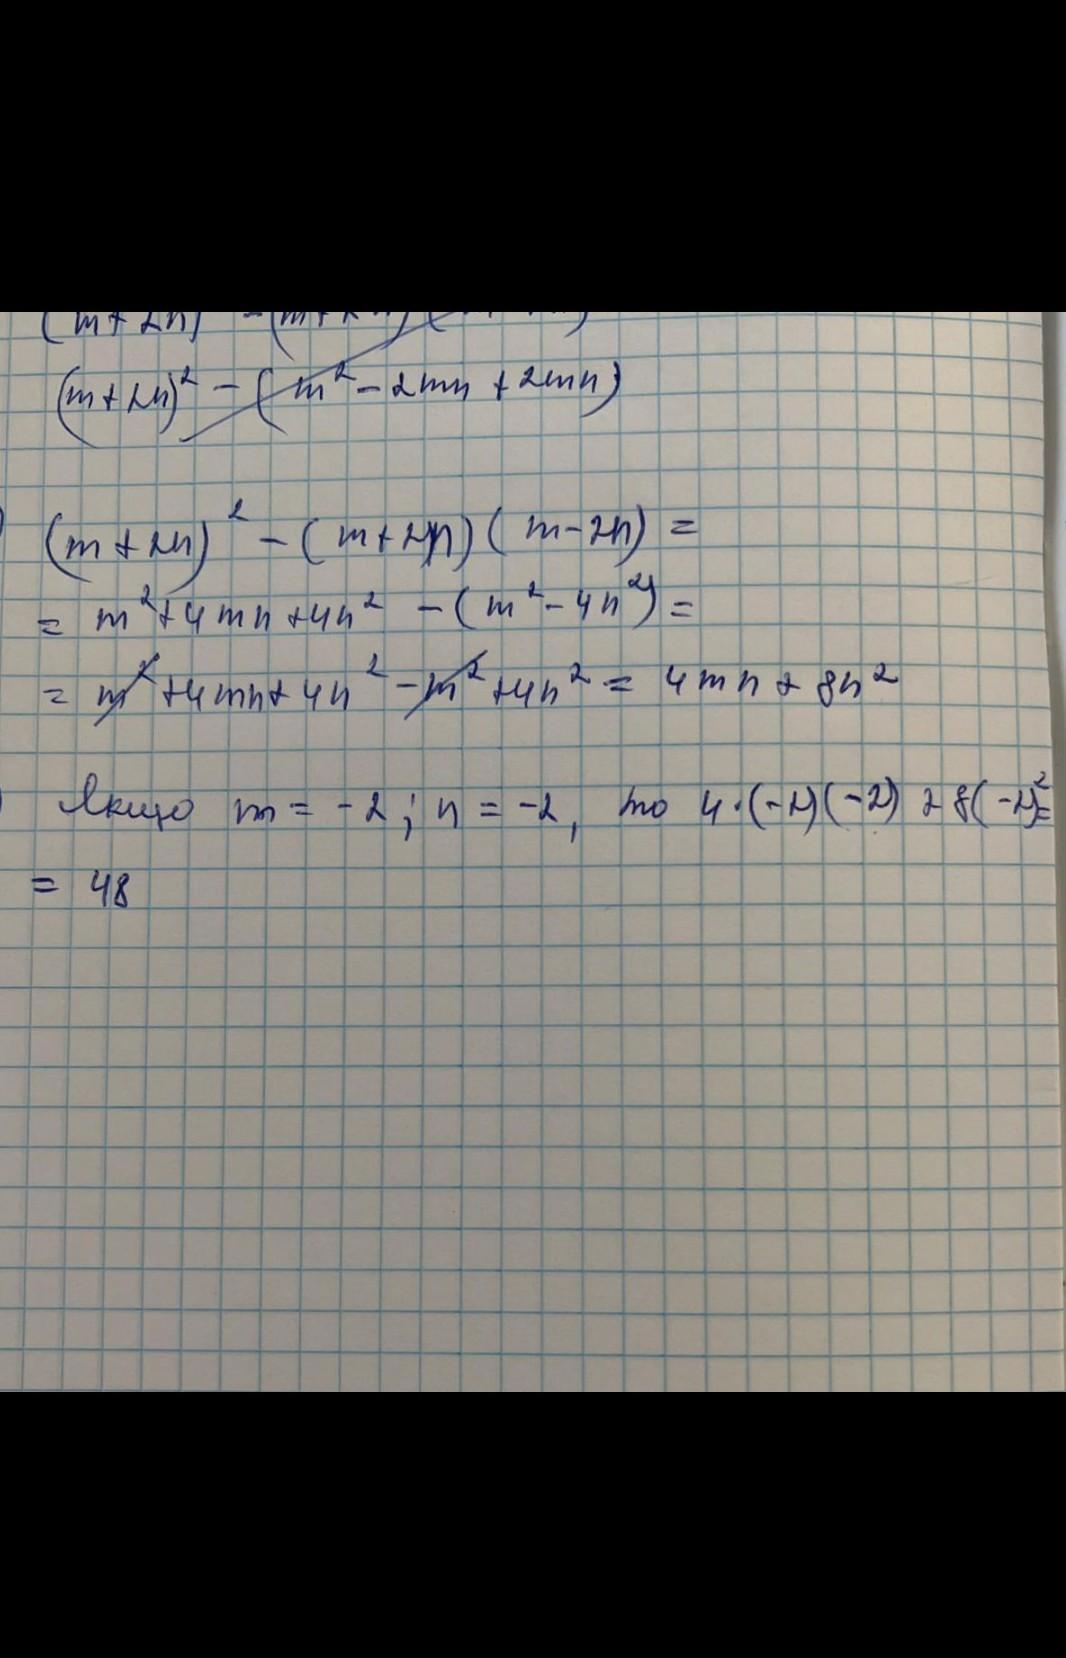 (m+2n)² - (m² - 2mn + 2mn)
(m+2n)² - (m+2n)(m-2n) =
= m² + 4mn + 4n² - (m² - 4n²) =
= m² + 4mn + 4n² - m² + 4n² = 4mn + 8n²
Якщо m = -2; n = -2, то 4·(-2)(-2) + 8(-2)² =
= 48